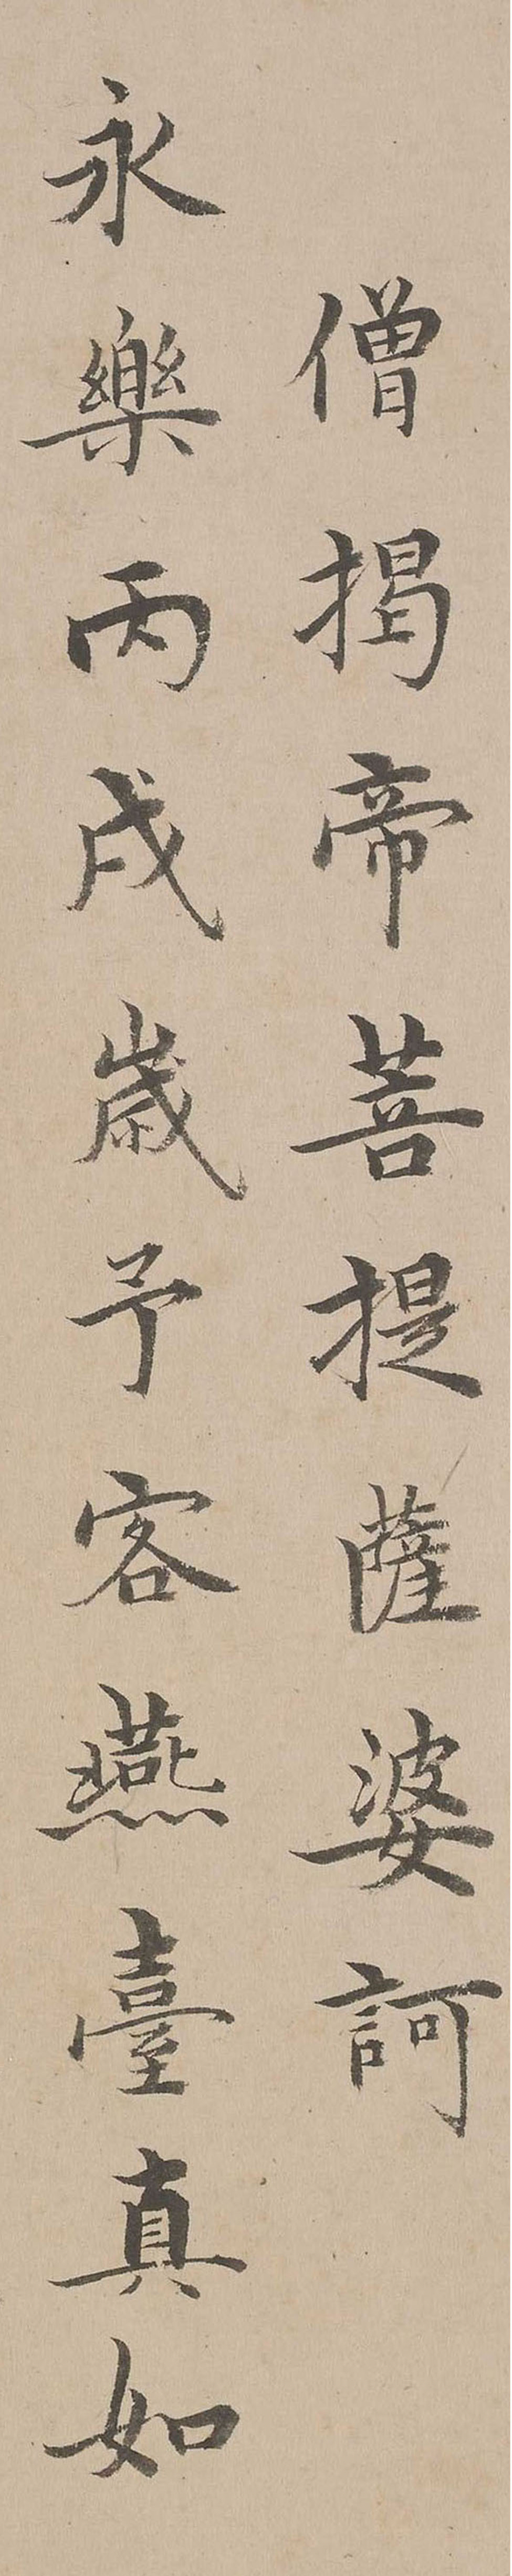 僧揭帝菩提薩婆訶
永樂丙戌歲予客燕臺真如